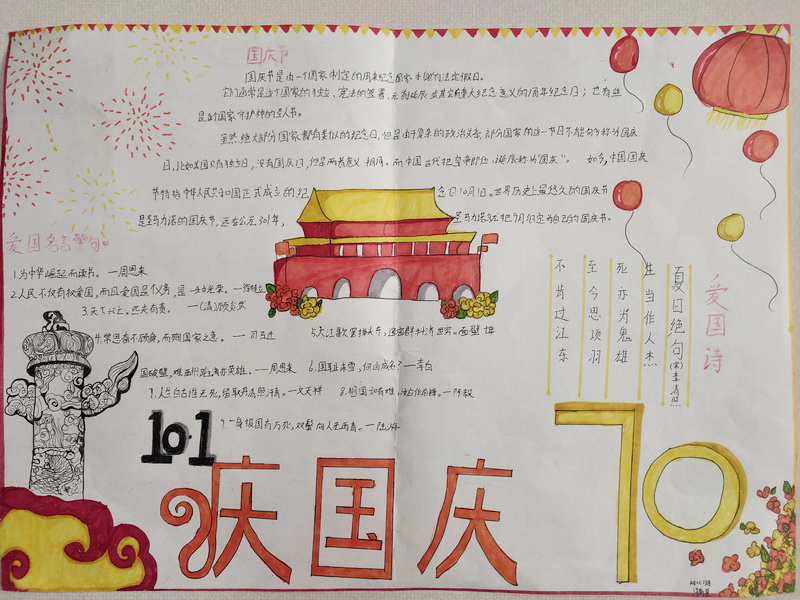 国庆节
国庆节是由一个国家制定的用来纪念国家本身的法定假日。
它们通常是这个国家的独立、宪法的签署、元首诞辰或其它有重大纪念意义的周年纪念日；也有些
是这个国家守护神的圣人节。
虽然绝大部分国家都有类似的纪念日，但是由于复杂的政治关系，部分国家的这一节日不能够称为国庆
日，比如美国只有独立日，没有国庆日，但是两者意义相同。而中国古代把皇帝即位、诞辰称为"国庆"。 如今，中国国庆
节特指中华人民共和国正式成立的纪 念日10月1日。世界历史上最悠久的国庆节
是圣马力诺的国庆节，远在公元301年， 圣马力诺就把9月 定为自己的国庆节。
爱国名言警句。
1.为中华崛起而读书。—周恩来
2.人民不仅有权爱国，而且爱国是个义务，是一种光荣。—徐特立
3.天下兴亡，匹夫有责。—(清)顾炎武
4.常思奋不顾身，而殉国家之急。—司马迁
5.大江歌罢掉头东，邃密群科济世穷。面壁十年
图破壁，难酬蹈海亦英雄。—周恩来
6.国耻未雪，何由成名？—李白
7.人生自古谁无死，留取丹心照汗青。—文天祥
8.祖国如有难，
爱国诗
夏日绝句(宋)李清照
生当作人杰
死亦为鬼雄
至今思项羽
不肯过江东
10.1
庆国庆
70